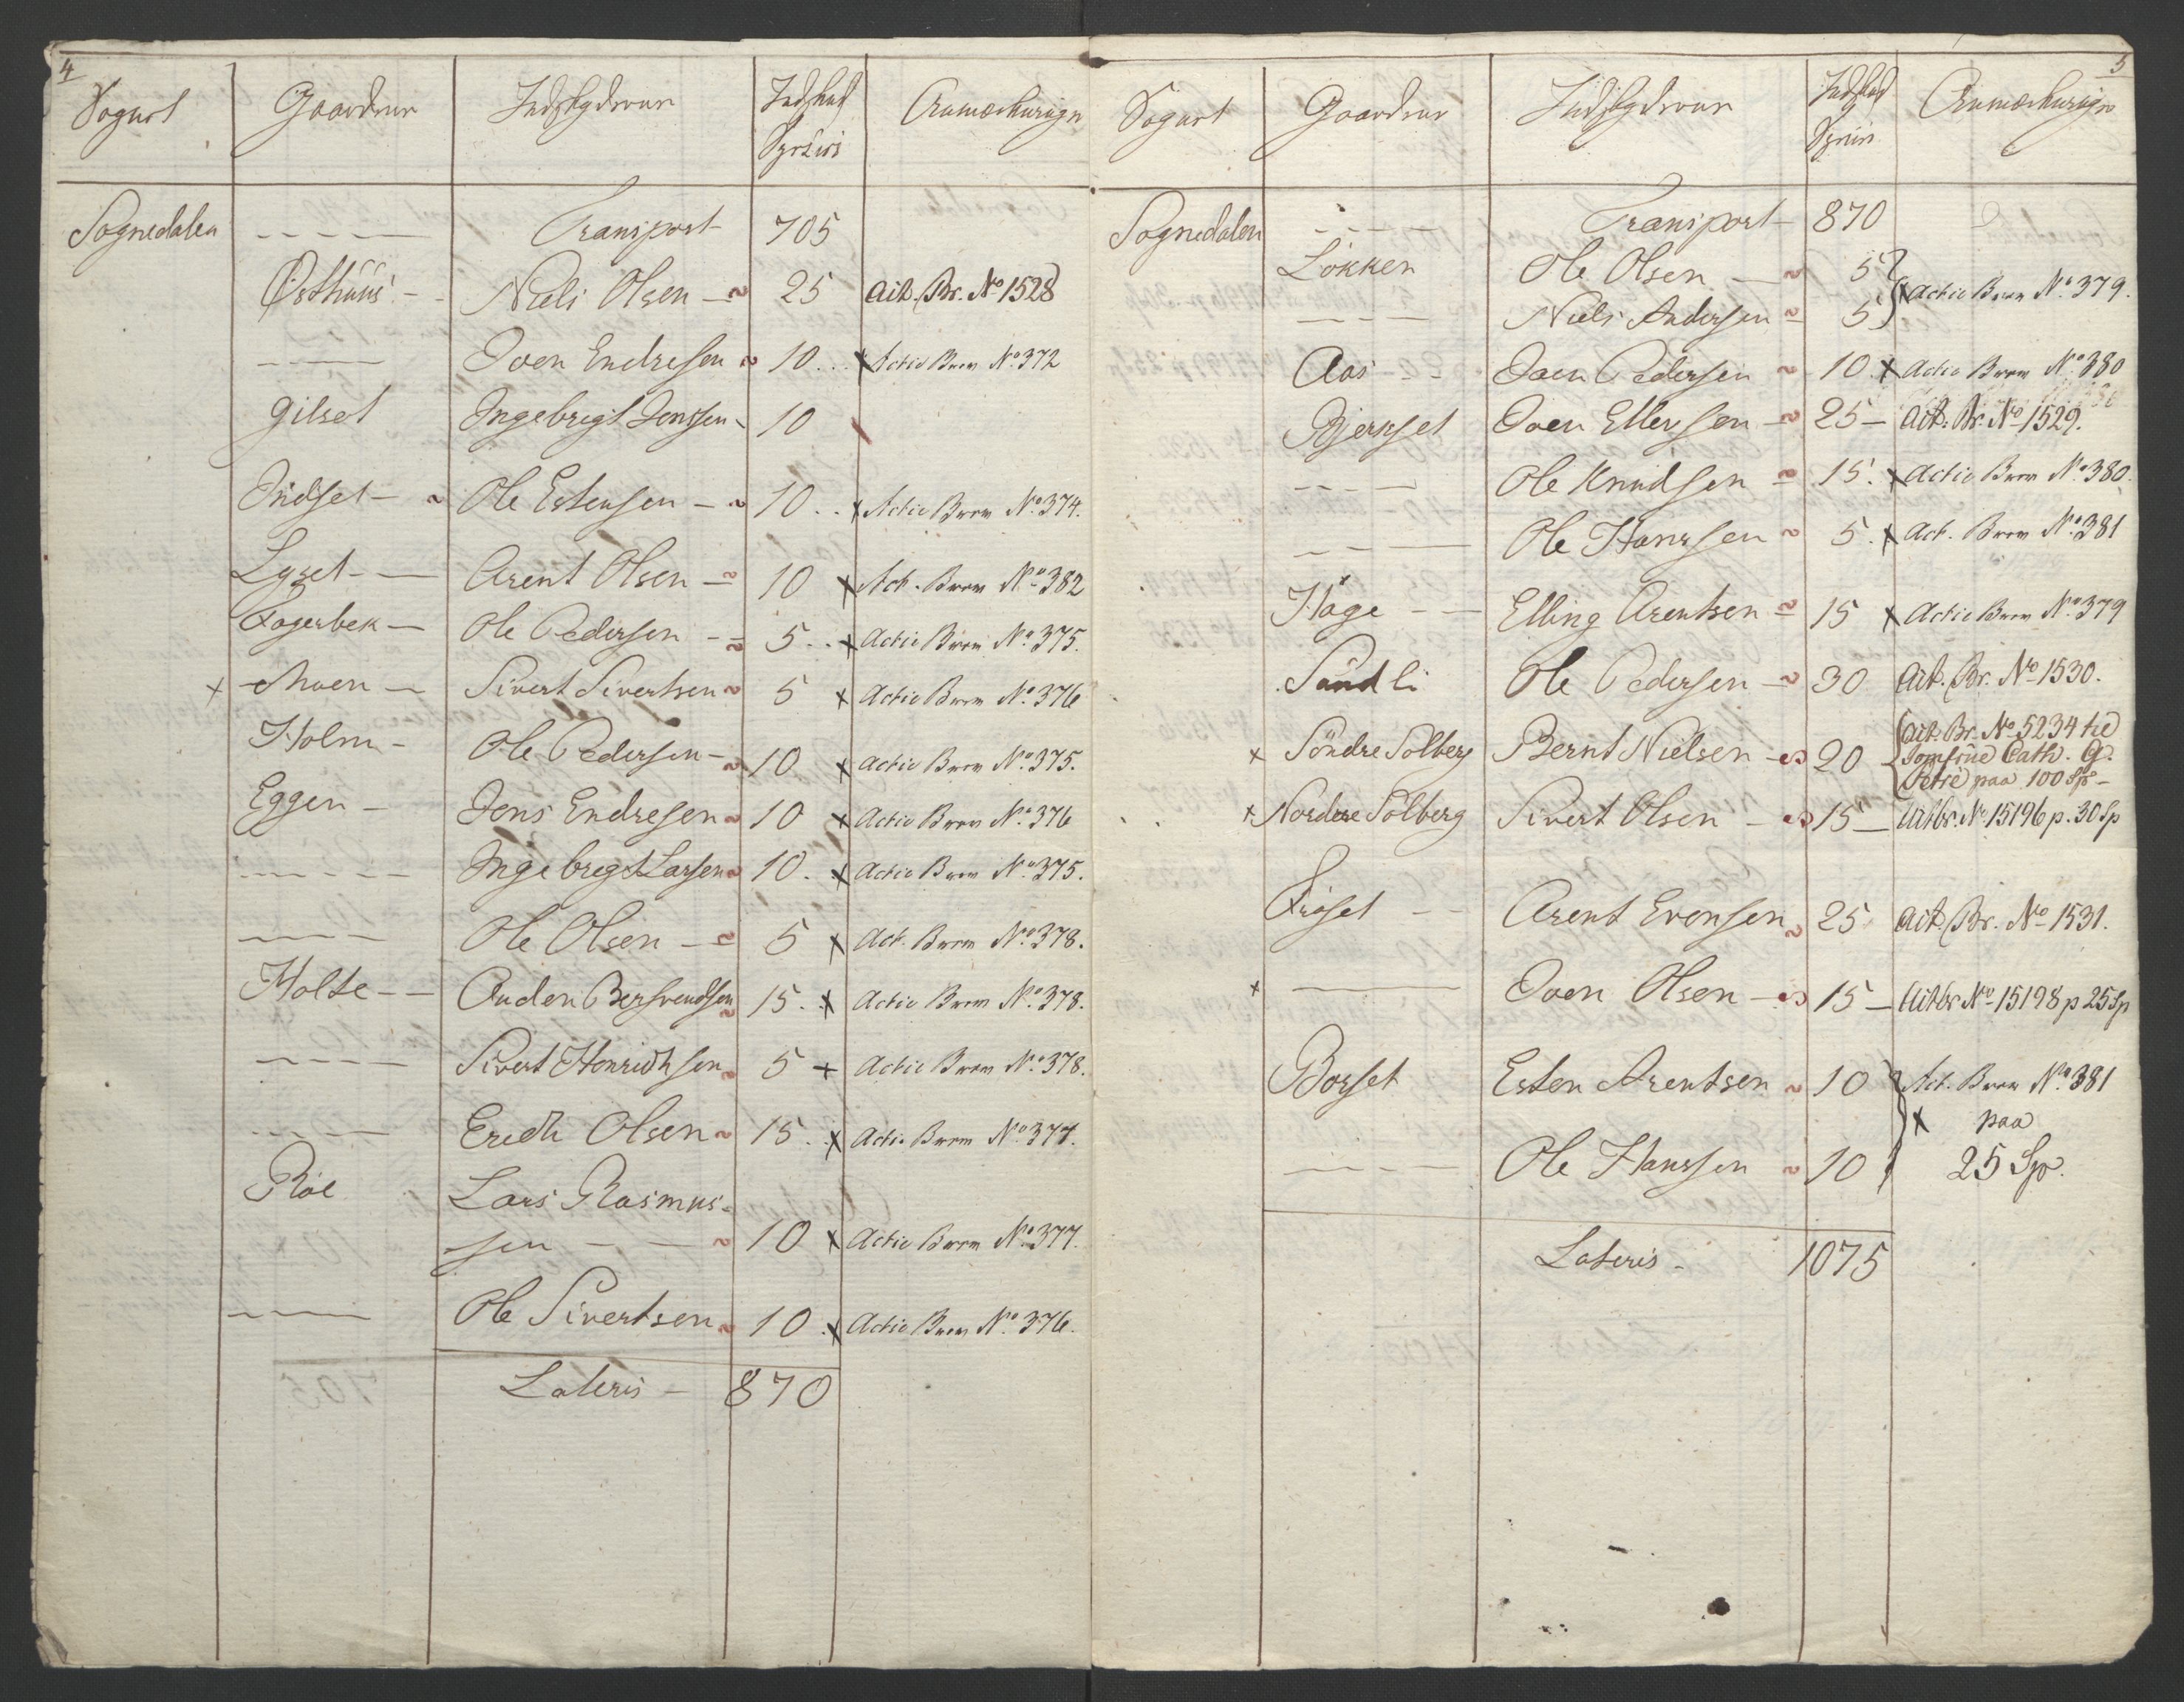 4
Sognet Gaardene Indskyderne Indskud Spesier Anmærkninger
Sognedalen - - - - Transport 705
Østhuus - - Niels Olsen - 25 Act. Br. No 1528
- - - Joen Endresen 10 .. x Actie Brev No 372
Gilset Ingebrigt Jenssen - 10
Indset - Ole Estensen - 10 .. x Actie Brev No 374.
Lyset - - Arent Olsen - 10 x Act. Brev No 382
Fagerbek - Ole Pedersen - - 5 .. x Actie Brev No 375.
x Moen - Sivert Sivertsen 5 x Actie Brev No 376
Holm - Ole Pedersen - 10 x Actie Brev No 375.
Eggen - Jens Endresen 10 x Actie Brev No 376
- - - - Ingebrigt Larsen 10 . x Actie Brev No 375.
- - - Ole Olsen - 5 x Act. Brev No 378.
Holte - - Anders Bersvendsen 15 . x Actie Brev No 378.
- - - Sivert Henrichsen 5 x Actie Brev No 378.
- - - Erich Olsen 15 . x Actie Brev No 377.
Röe Lars Rasmus-
sen - - 10 x Actie Brev No 377.
- - - Ole Sivertsen 10 . x Actie Brev No 376.
Lateris - 870
5
Sognet Gaardene Indskyderne Indskud Spesier Anmærkninger
Sognedalen - - - - Transport - 870
Løkken Ole Olsen - 5
x Actie Brev No 379.
- - - Niels Andersen - 5
Aas - - Joen Pedersen 10 . x Actie Brev No 380
Bjerkset Joen Ellevsen - 25 - Act. Br. No 1529.
- - - Ole Knudsen - 15 . x Actie Brev No 380.
- - - Ole Hansen 5 . x Act. Brev No 381
Hage - - Elling Arentsen - 15 x Actie Brev No 379
Sandli Ole Pedersen - 30 Act. Br. No 1530.
x Söndre Solberg Bernt Nielsen - 20 Act. Br. No 5234 til
Jomfrue Cath. G.
Petré paa 100 Sp -
x Nordre Solberg Sivert Olsen - 15 - Actbr. No 15196 p. 30 Sp
Fröset - - Arent Evensen 25 Act. Br. No 1531.
x - - - Joen Olsen - 15 - Actbr No 15198 p 25 Sp
Borset Esten Arentsen 10 Act. Brev No 381
x paa
- - - Ole Hanssen 10 25 Sp.
Lateris - 1075